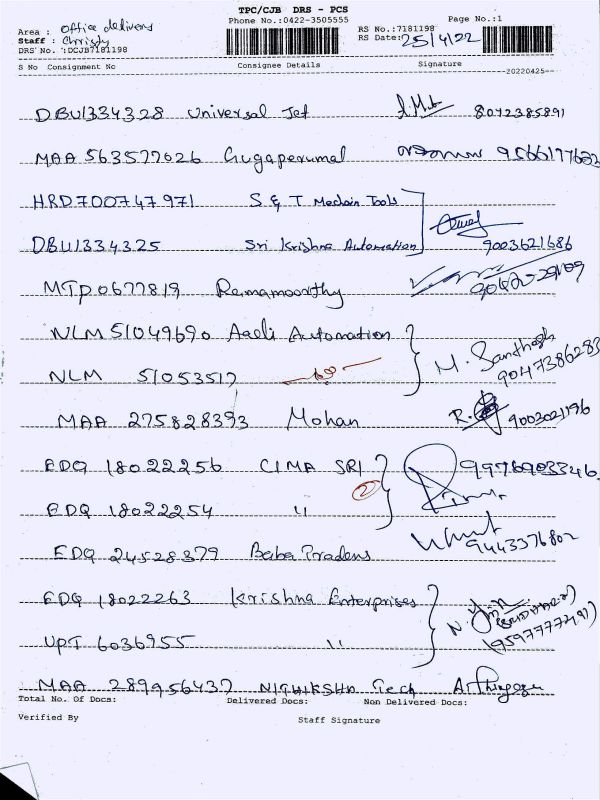 TPC/CJB DRS - PCS
Phone No.:0422-3505555
Page No.:1
Area : Office delivery
RS No.:7181198
Staff : Christy
RS Date: 25/4/22
DRS No. :DCJB7181198
S No Consignment No Consignee Details Signature
20220425
DBU1334328 Universal Jet 8042385891
MAA 563577026 Gugaperumal
HRD700747971 S & T Mechain Tools
DBU1334325 Sri Krishna Automation 9003621686
MTP0677819 Ramamoorthy
NLM 51049690 Aadi Automation
NLM 51053517 M. Santhosh 9047386283
MAA 275828393 Mohan R. 9003021196
EDQ 18022256 CIMA SRI 9976903346
2
EDQ 18022254 "
EDQ 24528379 Baba Pradens 9443376802
EDQ 18022263 Krishna Enterprises
UPT 6036955 "
MAA 289956437 NIGHIKSHA Tech
Total No. Of Docs: Delivered Docs: Non Delivered Docs:
Verified By Staff Signature